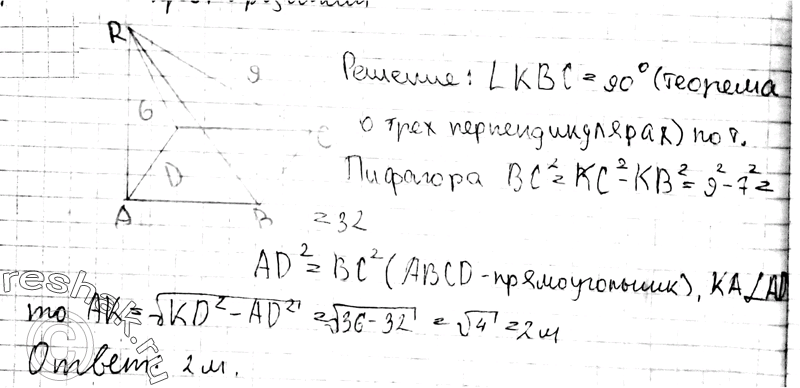 R
9
Решение: ∠KBC = 90° (теорема
6
о трех перпендикулярах) по т.
C
D
Пифагора BC² = KC² - KB² = 9² - 7² =
A
B
= 32
AD² = BC² (ABCD - прямоугольник), KA ⊥ AD
то AK = √KD² - AD² = √36 - 32 = √4 = 2 м
Ответ: 2 м.
reshak.ru